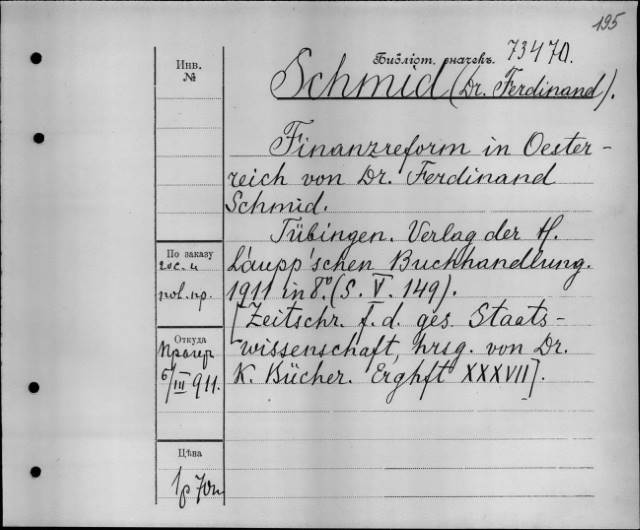 195
Инв.
№
Библіот. значекъ. 73470.
Schmid (Dr. Ferdinand).
Finanzreform in Oester-
reich von Dr. Ferdinand
Schmid.
Tübingen. Verlag der H.
Laupp'schen Buchhandlung.
1911 in 8º. (S. V. 149).
[Zeitschr. f. d. ges. Staats-
wissenschaft, hrsg. von Dr.
K. Bücher. Erghft XXXVII].
По заказу
гос. и
пол. пр.
Откуда
Прагер
6/III 911.
Цѣна
1р 70к